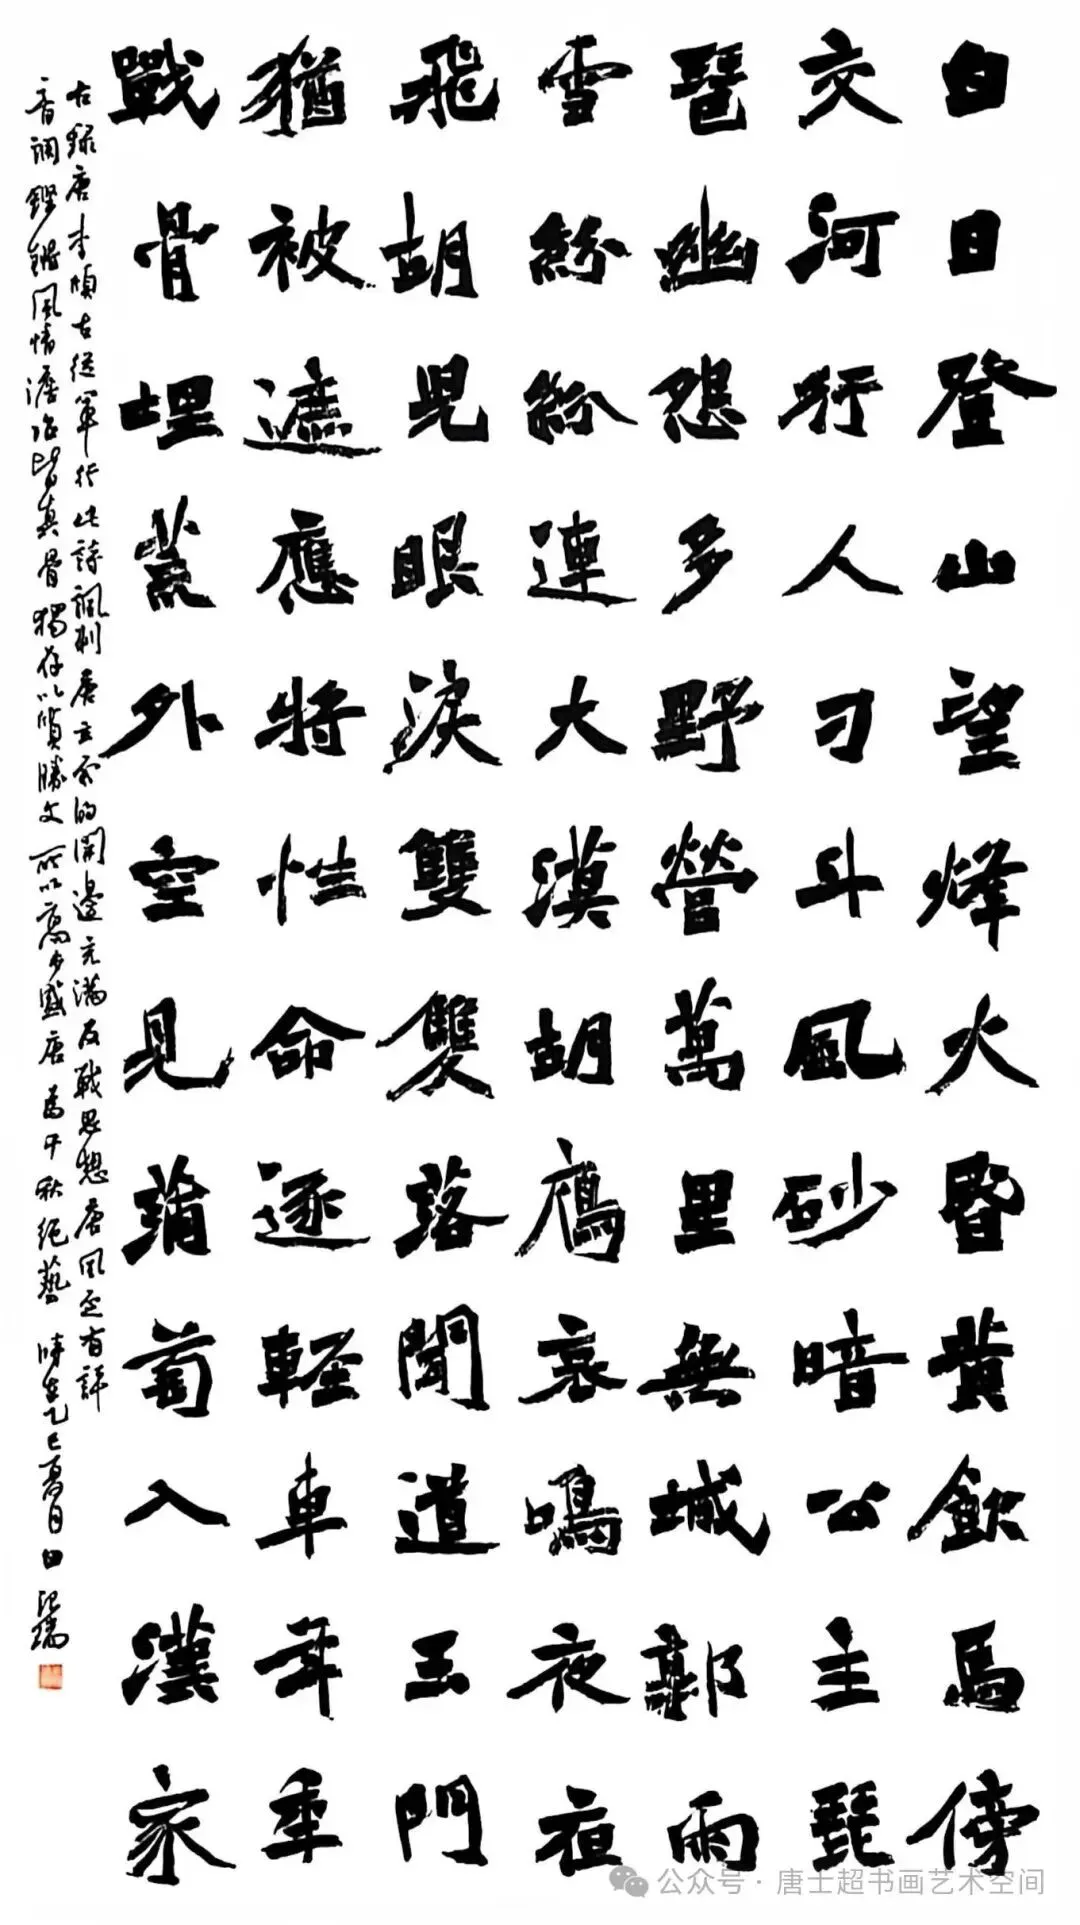 白日登山望烽火昏黃飲馬傍
交河行人刁斗風砂暗公主琵
琶幽怨多野營萬里無城郭雨
雪紛紛連大漠胡鴈哀鳴夜夜
飛胡兒眼淚雙雙落聞道玉門
猶被遮應將性命逐輕車年年
戰骨埋荒外空見蒲萄入漢家
右錄唐李頎古從軍行此詩諷刺唐玄宗的開邊充滿反戰思想唐風定有評
音調鏗鏘風情澹冶皆真骨獨存以質勝文所以高步盛唐為千秋絕藝 時在乙巳夏月
公众号 · 唐士超书画艺术空间